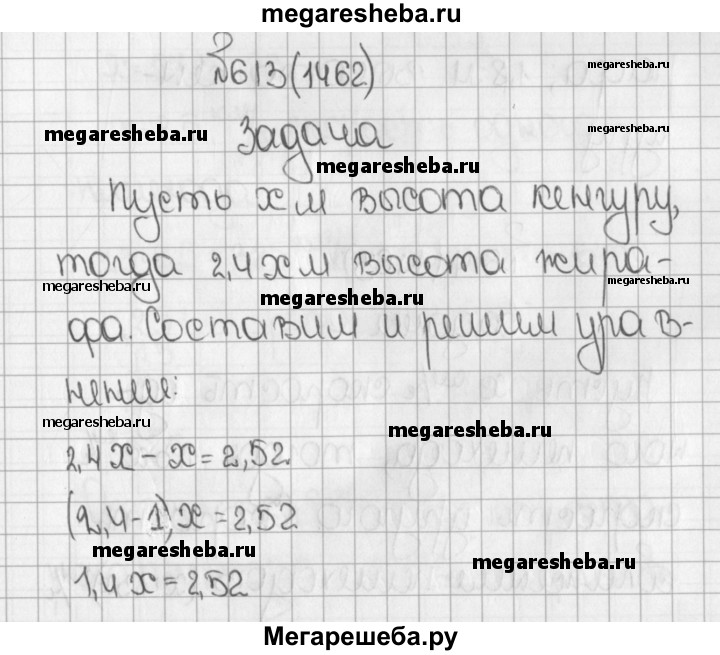 megaresheba.ru
№613(1462)
megaresheba.ru
megaresheba.ru Задача megaresheba.ru
megaresheba.ru
Пусть х м высота кенгуру,
тогда 2,4х м высота жира-
megaresheba.ru megaresheba.ru megaresheba.ru
фа. Составим и решим урав-
нение:
megaresheba.ru megaresheba.ru
2,4х - х = 2,52
(2,4-1)х = 2,52
megaresheba.ru megaresheba.ru
1,4х = 2,52
Мегарешеба.ру